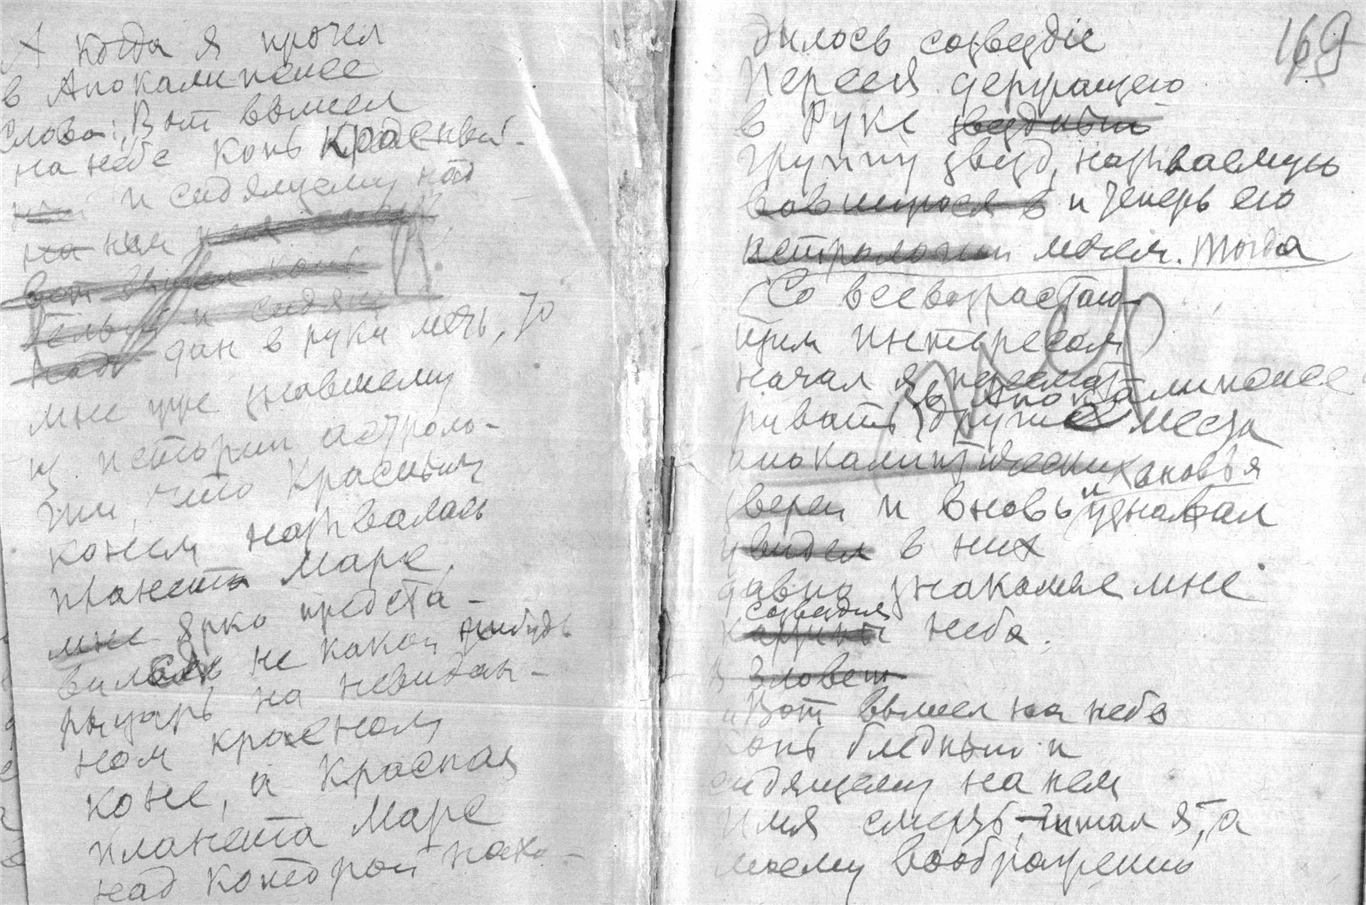 А когда я прочел
в Апокалипсисе
слова: „Вот вышел
на небе конь красный
и сидящему над
на нем
вот вышел конь
белый и сидящ
надъ дан в руки мечь, то
мне уже знавшему
из истории астроло-
гии, что Красным
конем называлась
планета Марс,
мне ярко предста-
вилась не какой нибудь
рыцарь на невидан-
ном красном
коне, а красная
планета Марс
над которой нахо-
169
дилось созвездие
Персея держащего
в руке звездный
группу звезд, называемую
и теперь его
мечем. Тогда
Со всевозрастаю-
щим интересом
начал я пересмат-
в Апокалипсисе
ривать другие места
апокалиптических
и вновь узнавал
увидел в них
давно знакомые мне
созвездия
картины неба.
Зловещ
„Вот вышел на небо
конь бледный и
сидящему на нем
имя смерть, читал я, а
моему воображению